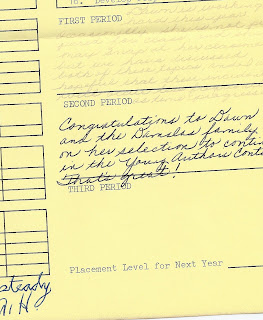 To: Develop
FIRST PERIOD
SECOND PERIOD
Congratulations to Dawn
and the family
on her selection to contin
in the Young Authors Cont
That's great!
THIRD PERIOD
Placement Level for Next Year
steady
H.